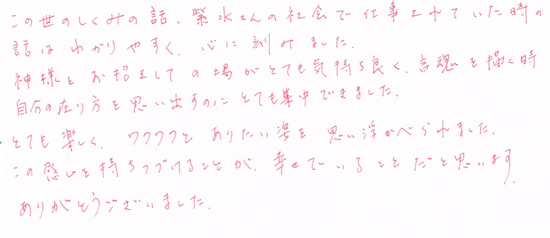 この世のしくみの話、紫水さんの社会で仕事されていた時の
話はわかりやすく、心に刻みました。
神様をお招きしての場がとても気持ち良く、言魂を描く時
自分の在り方を思い出すのにとても集中できました。
とても楽しく、ワクワクとありたい姿を思い浮かべられました。
この感じを持ちつづけることが、幸せでいることだと思います
ありがとうございました。